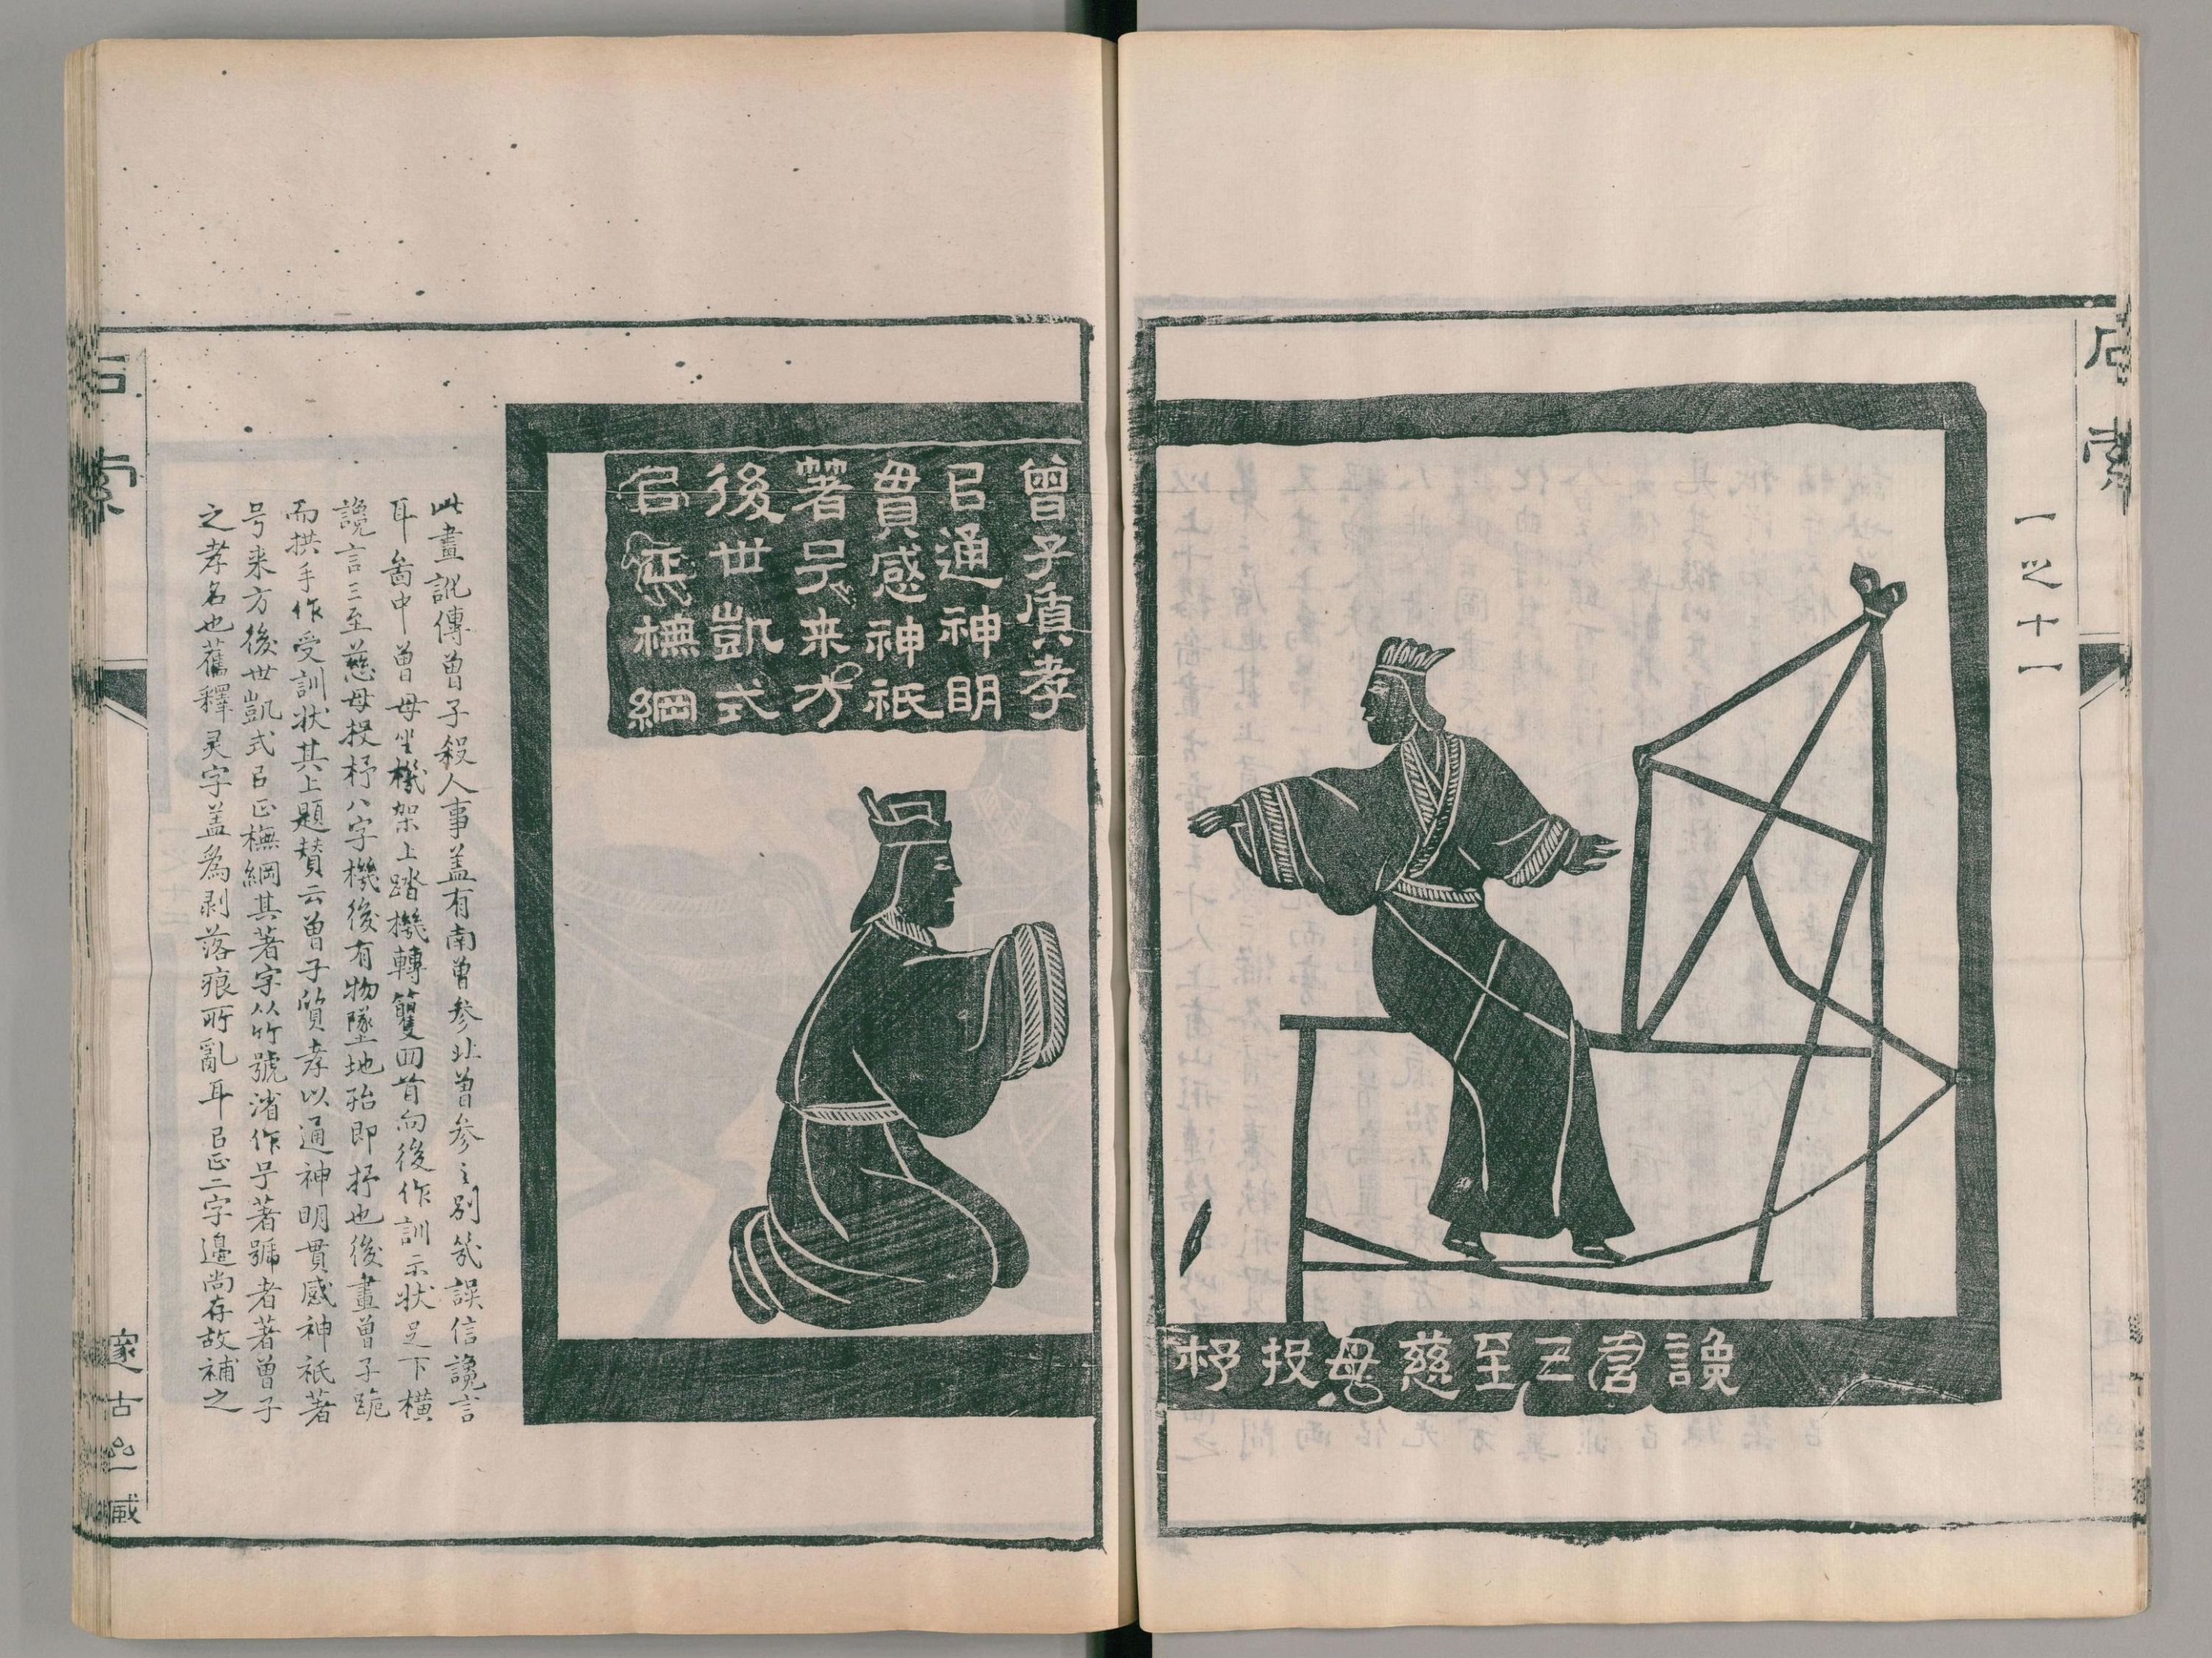 石索
一之十一
讒言三至慈母投杼
曾子質孝
㠯通神明
貫感神祇
著号来方
後世凱式
㠯正橅綱
此畫訛傳曾子殺人事盖有南曾参北曾参之別誤信讒言
耳啚中曾母坐機架上踏機轉籰回首向後作訓示状足下横
讒言三至慈母投杼八字機後有物墜地殆即杼也後畫曾子跪
而拱手作受訓状其上題賛云曾子質孝以通神明貫感神祇著
号来方後世凱式㠯正橅綱其著字从竹號渻作号著號者著曾子
之孝名也舊釋灵字盖為剥落痕所亂耳㠯正二字邉尚存故補之
石索
邃古藏